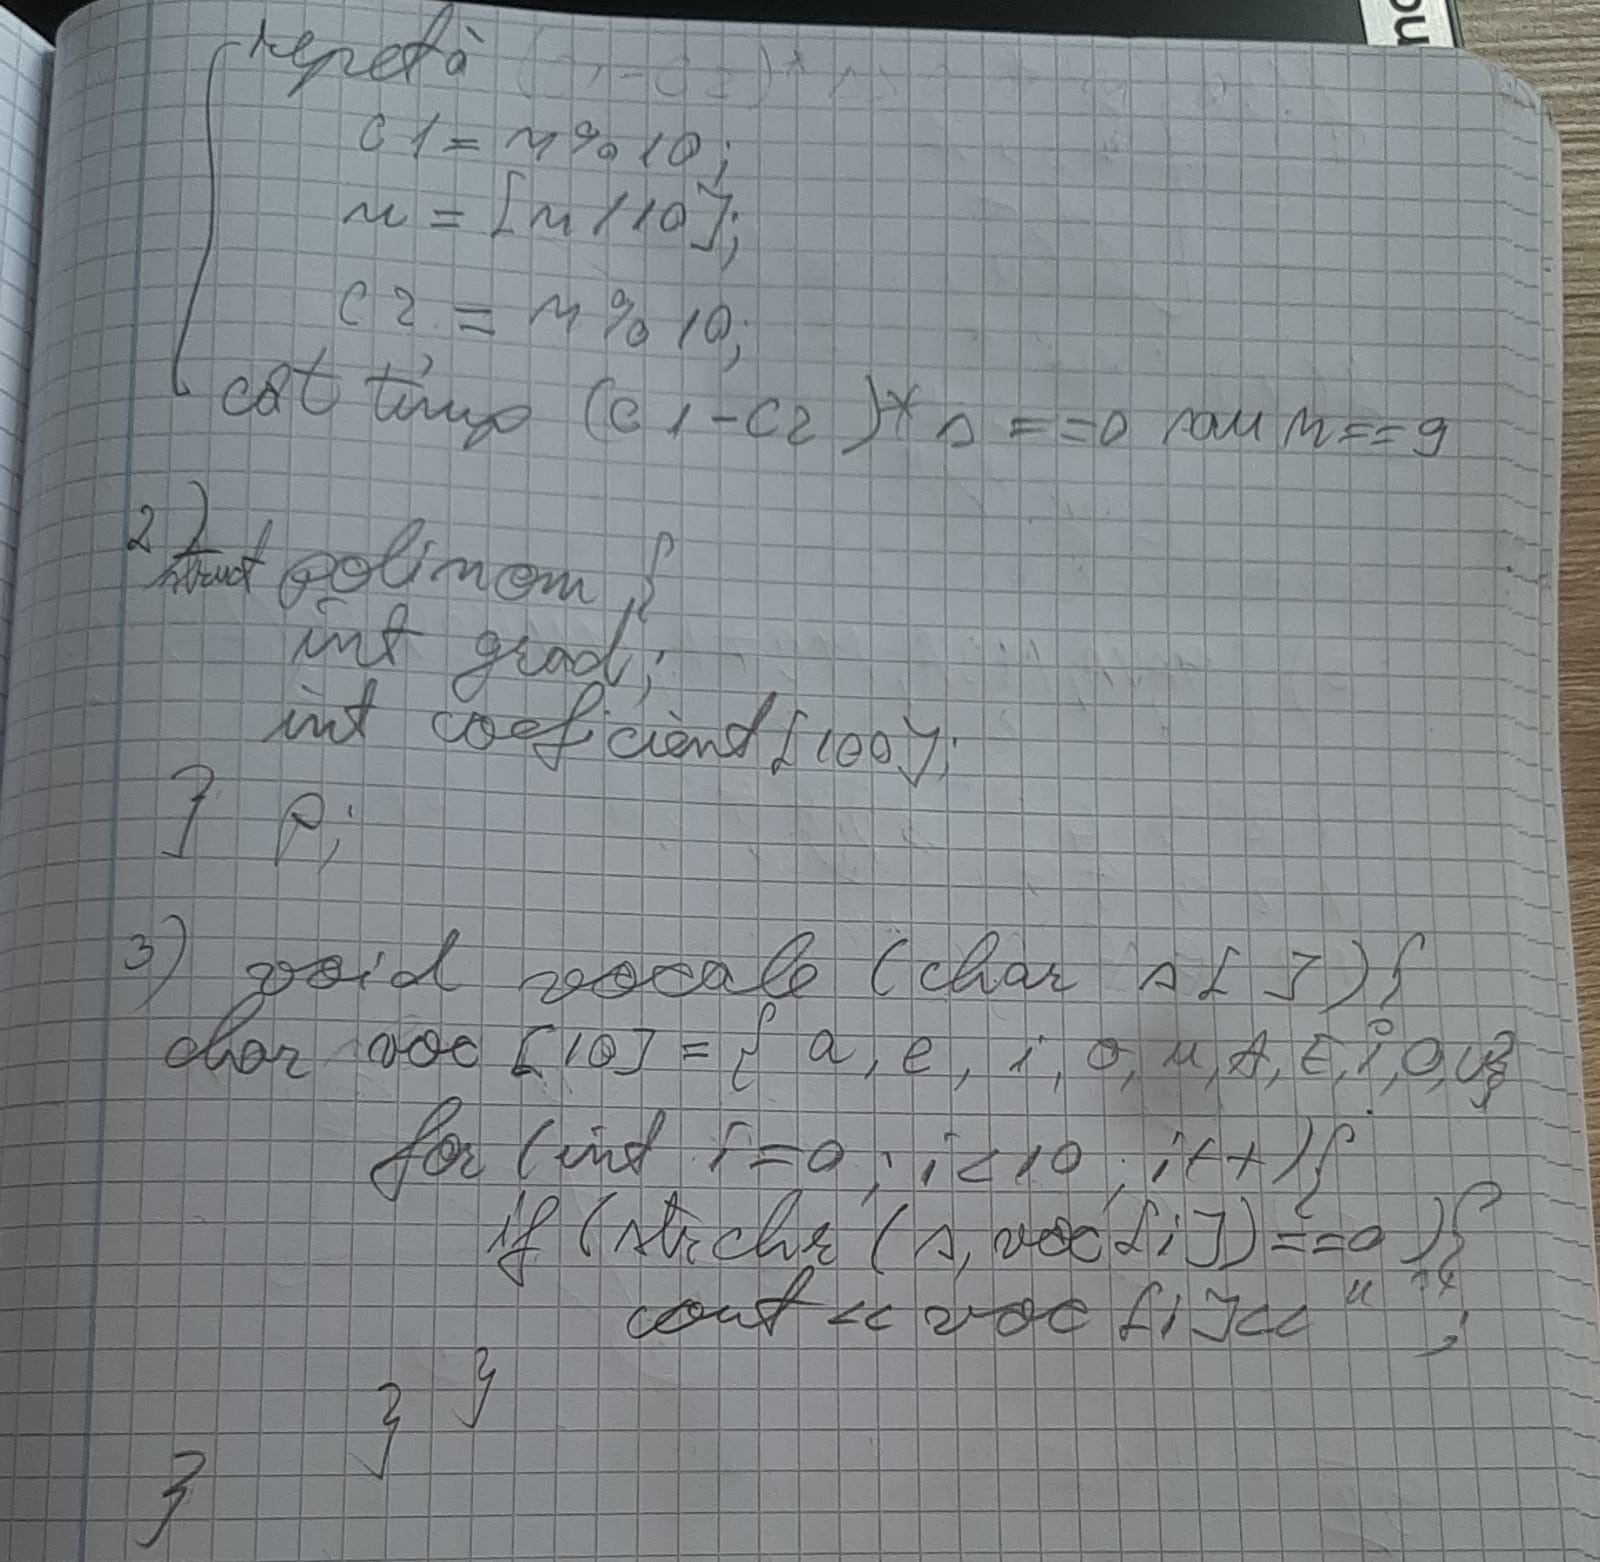 repetă
c1 = n % 10;
n = [n / 10];
c2 = n % 10;
cât timp (c1-c2)*s ==0 sau n==9
2)
struct polinom {
int grad;
int coeficient[100];
} p;
3) void vocale (char s[ ]){
char voc [10] = { a, e, i, o, u, A, E, i, O, U}
for (int i=0; i<10; i++){
if (strchr (s, voc[i])==0 ){
cout << voc [i]<< " ";
}
}
}